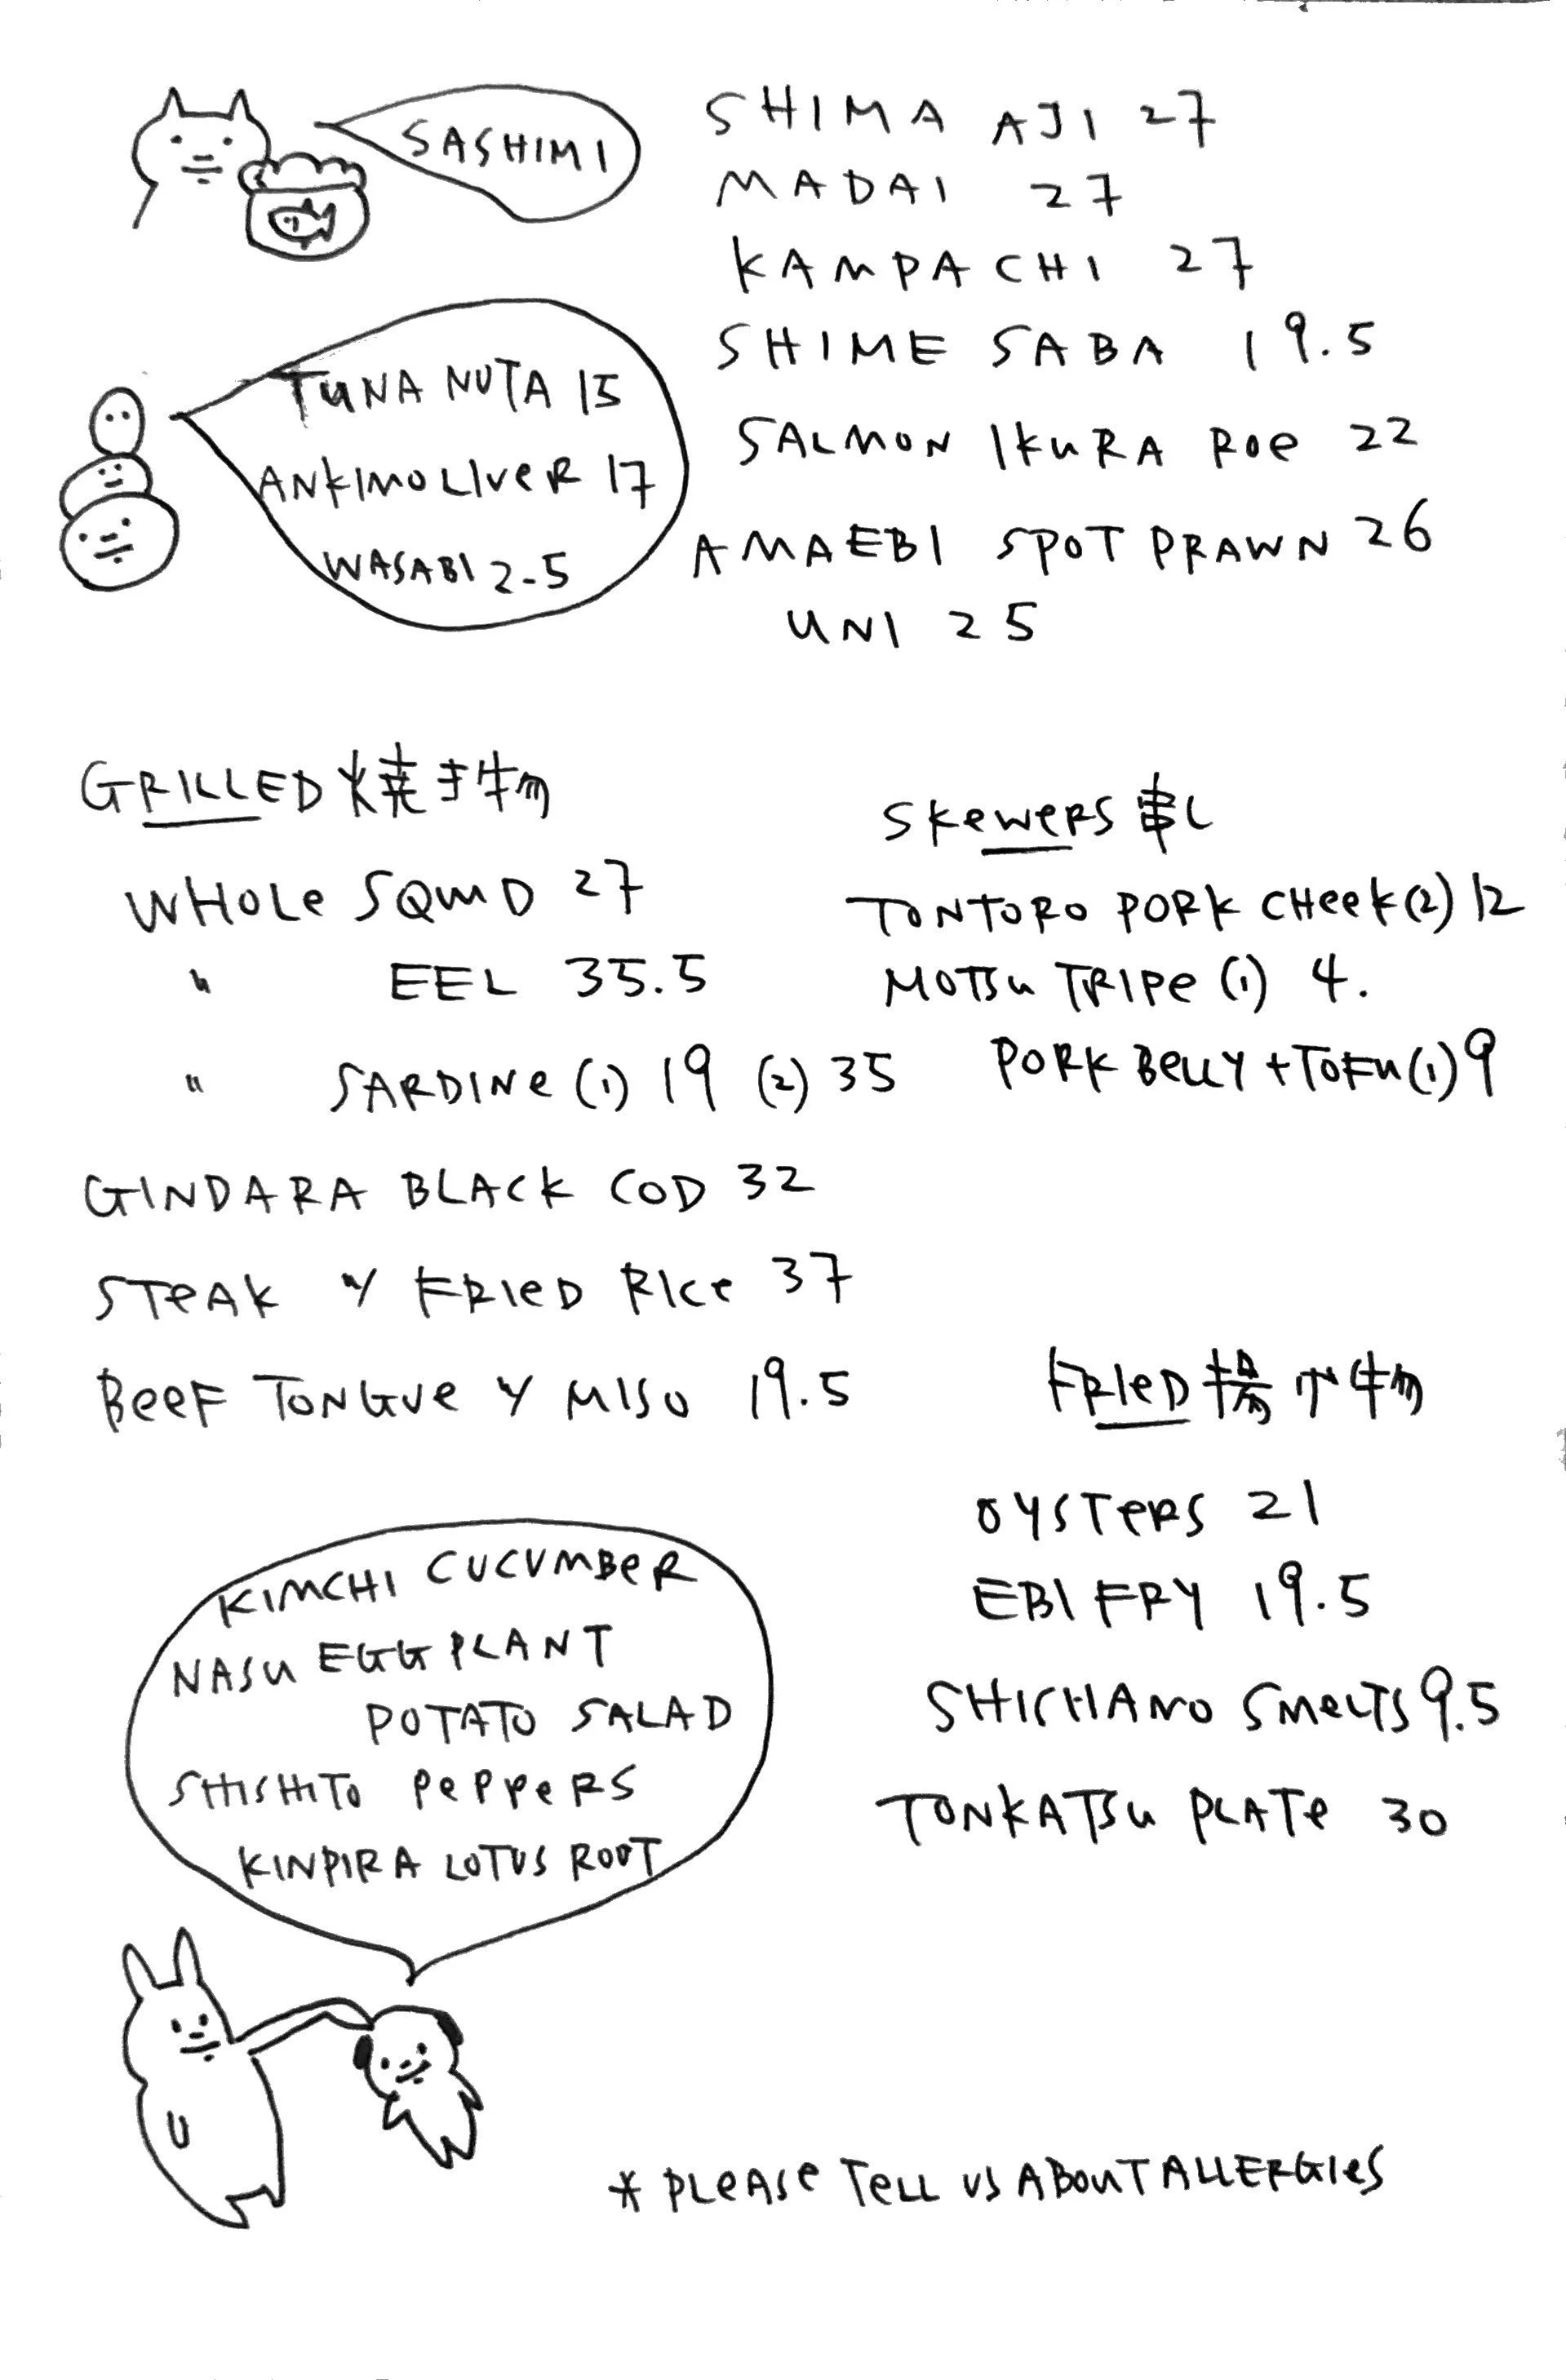 SASHIMI
SHIMA AJI 27
MADAI 27
KAMPACHI 27
SHIME SABA 19.5
SALMON IKURA ROE 22
AMAEBI SPOT PRAWN 26
UNI 25
TUNA NUTA 15
ANKIMO LIVER 17
WASABI 2.5
GRILLED 焼き物
WHOLE SQUID 27
" EEL 35.5
" SARDINE (1) 19 (2) 35
GINDARA BLACK COD 32
STEAK w/ FRIED RICE 37
BEEF TONGUE w/ MISO 19.5
SKEWERS 串し
TONTORO PORK CHEEK (2) 12
MOTSU TRIPE (1) 4.
PORK BELLY + TOFU (1) 9
FRIED 揚げ物
OYSTERS 21
EBI FRY 19.5
SHISHAMO SMELTS 9.5
TONKATSU PLATE 30
KIMCHI CUCUMBER
NASU EGGPLANT
POTATO SALAD
SHISHITO PEPPERS
KINPIRA LOTUS ROOT
* PLEASE TELL US ABOUT ALLERGIES